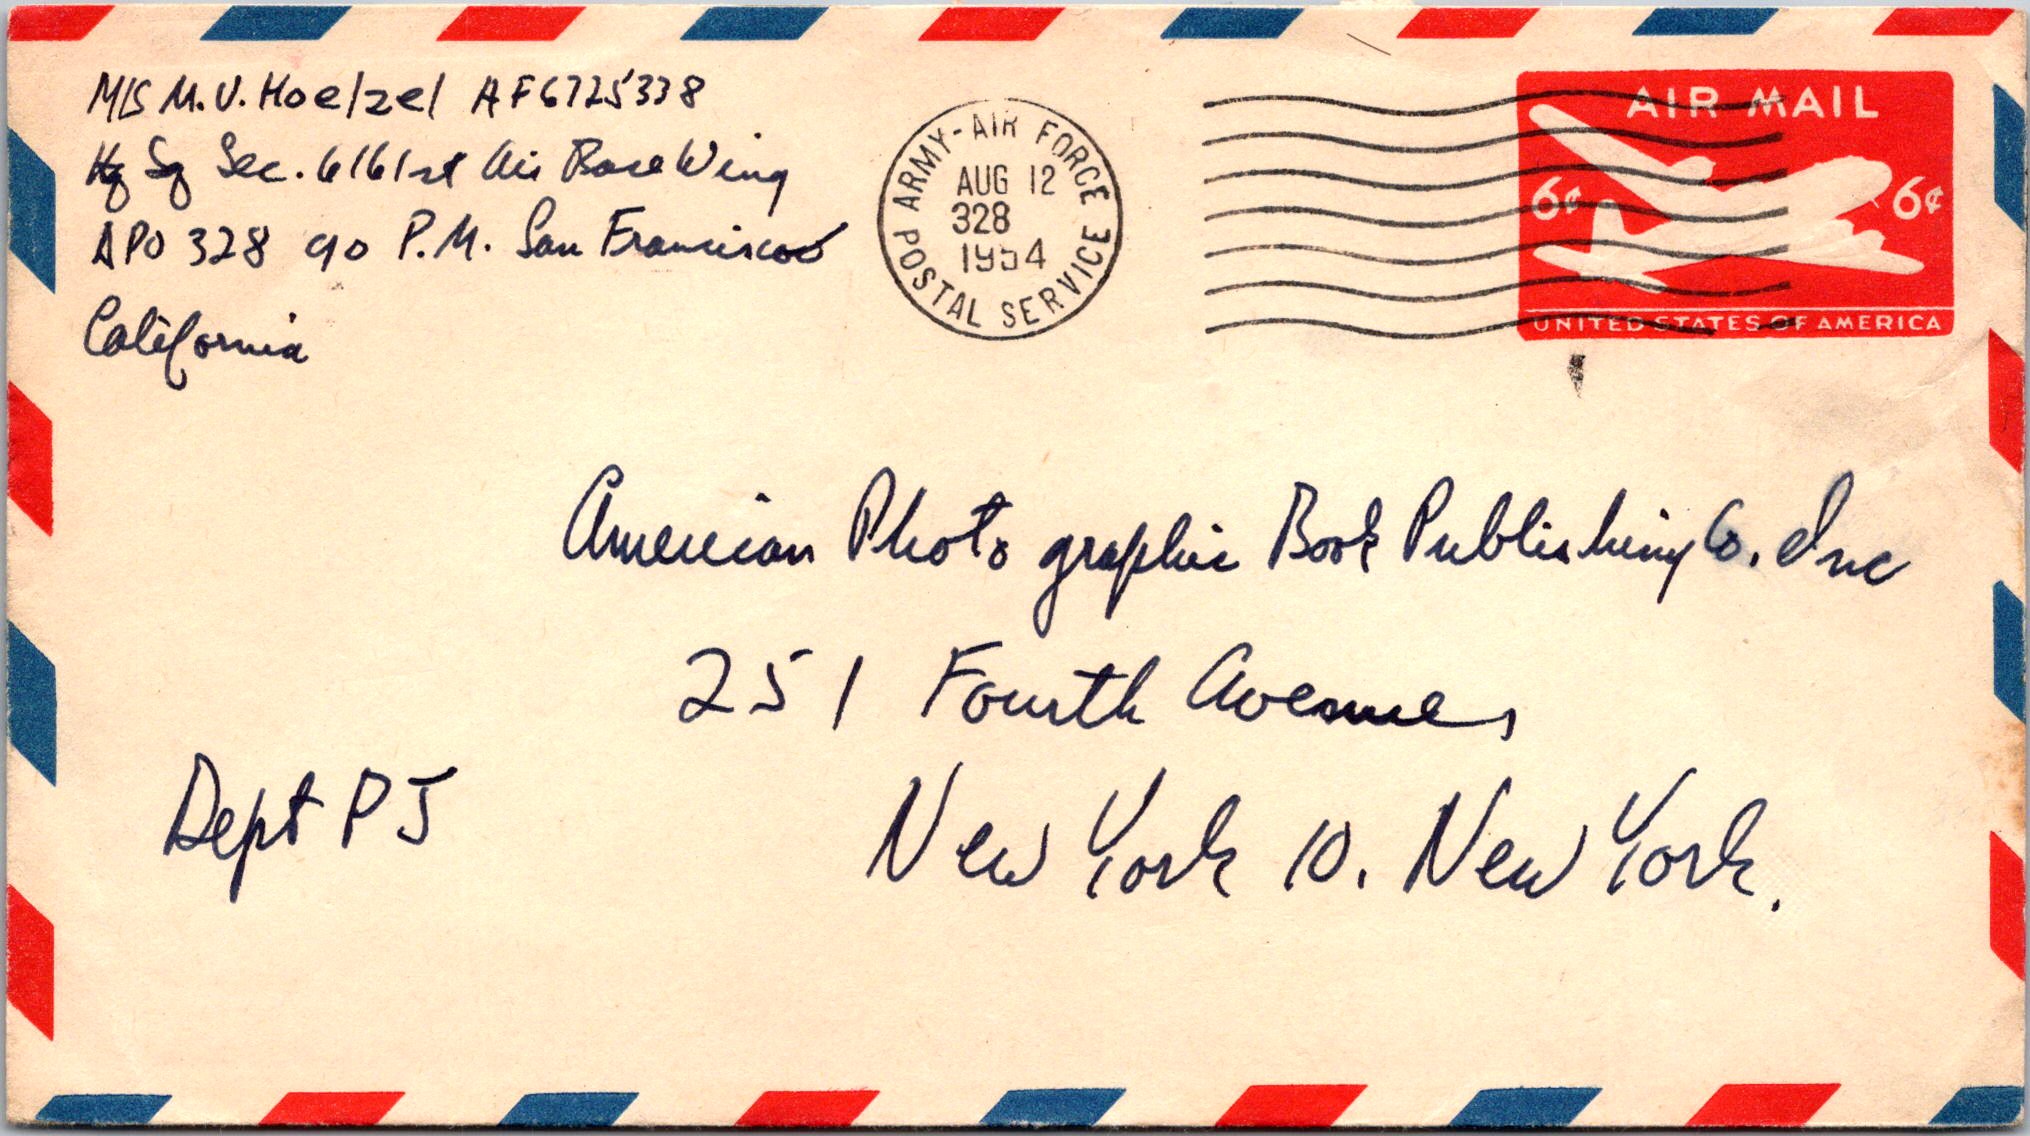 M/S M.V. Hoelzel AF6725338
Hq Sq Sec. 6161st Air Base Wing
APO 328 c/o P.M. San Francisco
California
ARMY-AIR FORCE
POSTAL SERVICE
AUG 12
328
1954
AIR MAIL
6¢ 6¢
UNITED STATES OF AMERICA
American Photographic Book Publishing Co. Inc
251 Fourth Avenue,
Dept PJ
New York 10. New York.